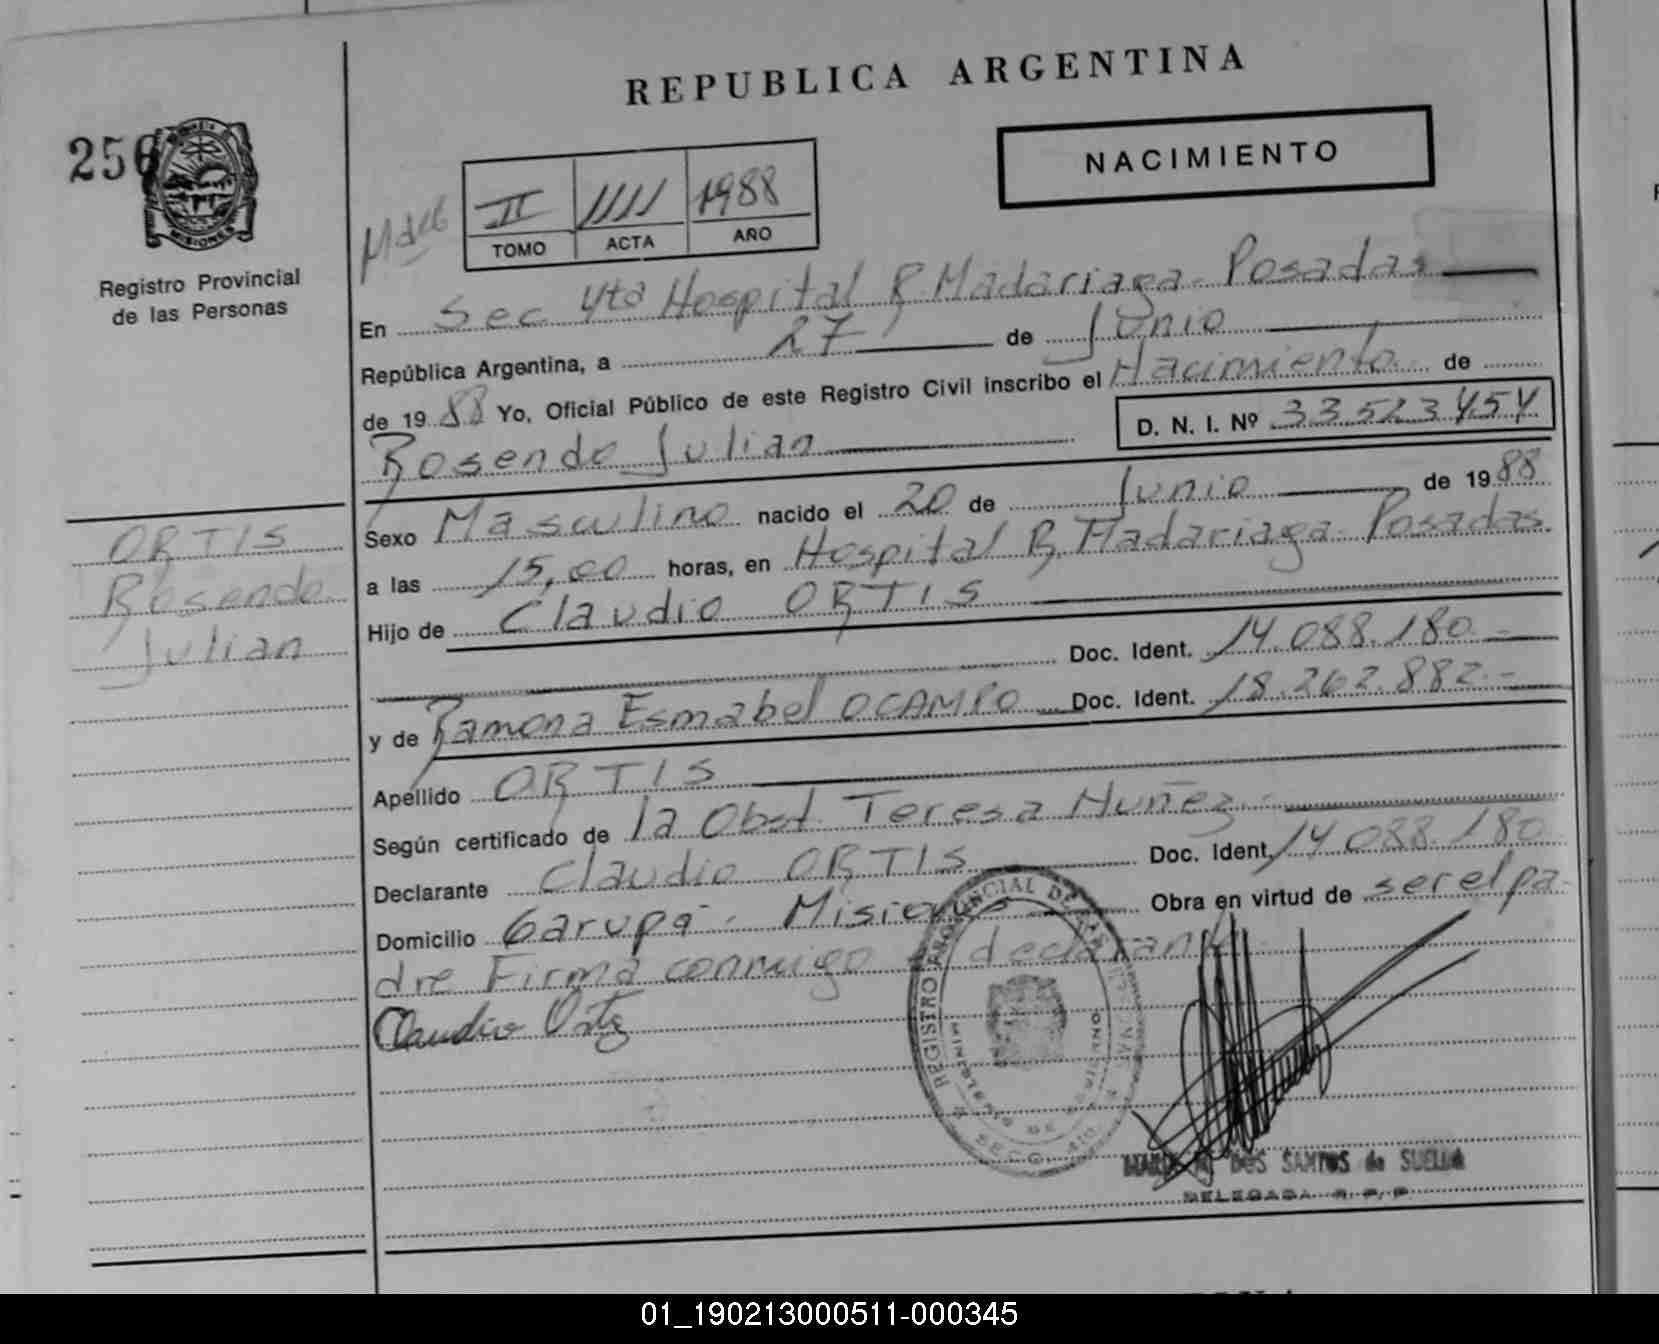 REPUBLICA ARGENTINA
256
MISIONES
Registro Provincial
de las Personas
NACIMIENTO
II 1111 1988
TOMO ACTA AÑO
En Sec 4ta Hospital R. Madariaga - Posadas
República Argentina, a 27 de Junio
de 1988 Yo, Oficial Público de este Registro Civil inscribo el Nacimiento de
Rosendo Julian D. N. I. Nº 33523454
ORTIS
Rosendo
Julian
Sexo Masculino nacido el 20 de Junio de 1988
a las 15,00 horas, en Hospital R. Madariaga - Posadas
Hijo de Claudio ORTIS
Doc. Ident. 14.088.180.-
y de Ramona Esmabel OCAMPO Doc. Ident. 18.262.882.-
Apellido ORTIS
Según certificado de la Obst. Teresa Nuñez.-
Declarante Claudio ORTIS Doc. Ident. 14.088.180
Domicilio Garupá - Misiones Obra en virtud de ser el pa-
dre Firma conmigo el declarante
Claudio Ortis
REGISTRO PROVINCIAL DE LAS PERSONAS
MINISTERIO DE GOBIERNO
DOS SANTOS de SUELDO
DELEGADA R. P. P.
01_190213000511-000345